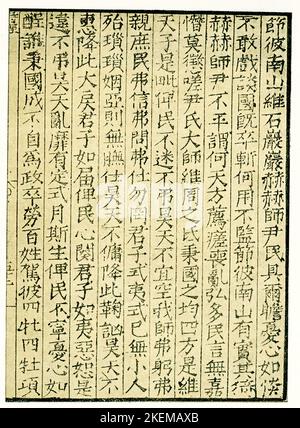 節彼南山維石巖巖赫赫師尹民具爾瞻憂心如惔
不敢戲談國既卒斬何用不監節彼南山有實其猗
赫赫師尹不平謂何天方薦瘥喪亂弘多民言無嘉
憯莫懲嗟尹氏大師維周之氐秉國之均四方是維
天子是毗俾民不迷不弔昊天不宜空我師弗躬弗
親庶民弗信弗問弗仕勿罔君子式夷式已無小人
殆瑣瑣姻亞則無膴仕昊天不傭降此鞠訩昊天不
惠降此大戾君子如屆俾民心闋君子如夷惡怒是
違不弔昊天亂靡有定式月斯生俾民不寧憂心如
酲誰秉國成不自為政卒勞百姓駕彼四牡四牡項
alamy
Image ID: 2KEMAXB
www.alamy.com